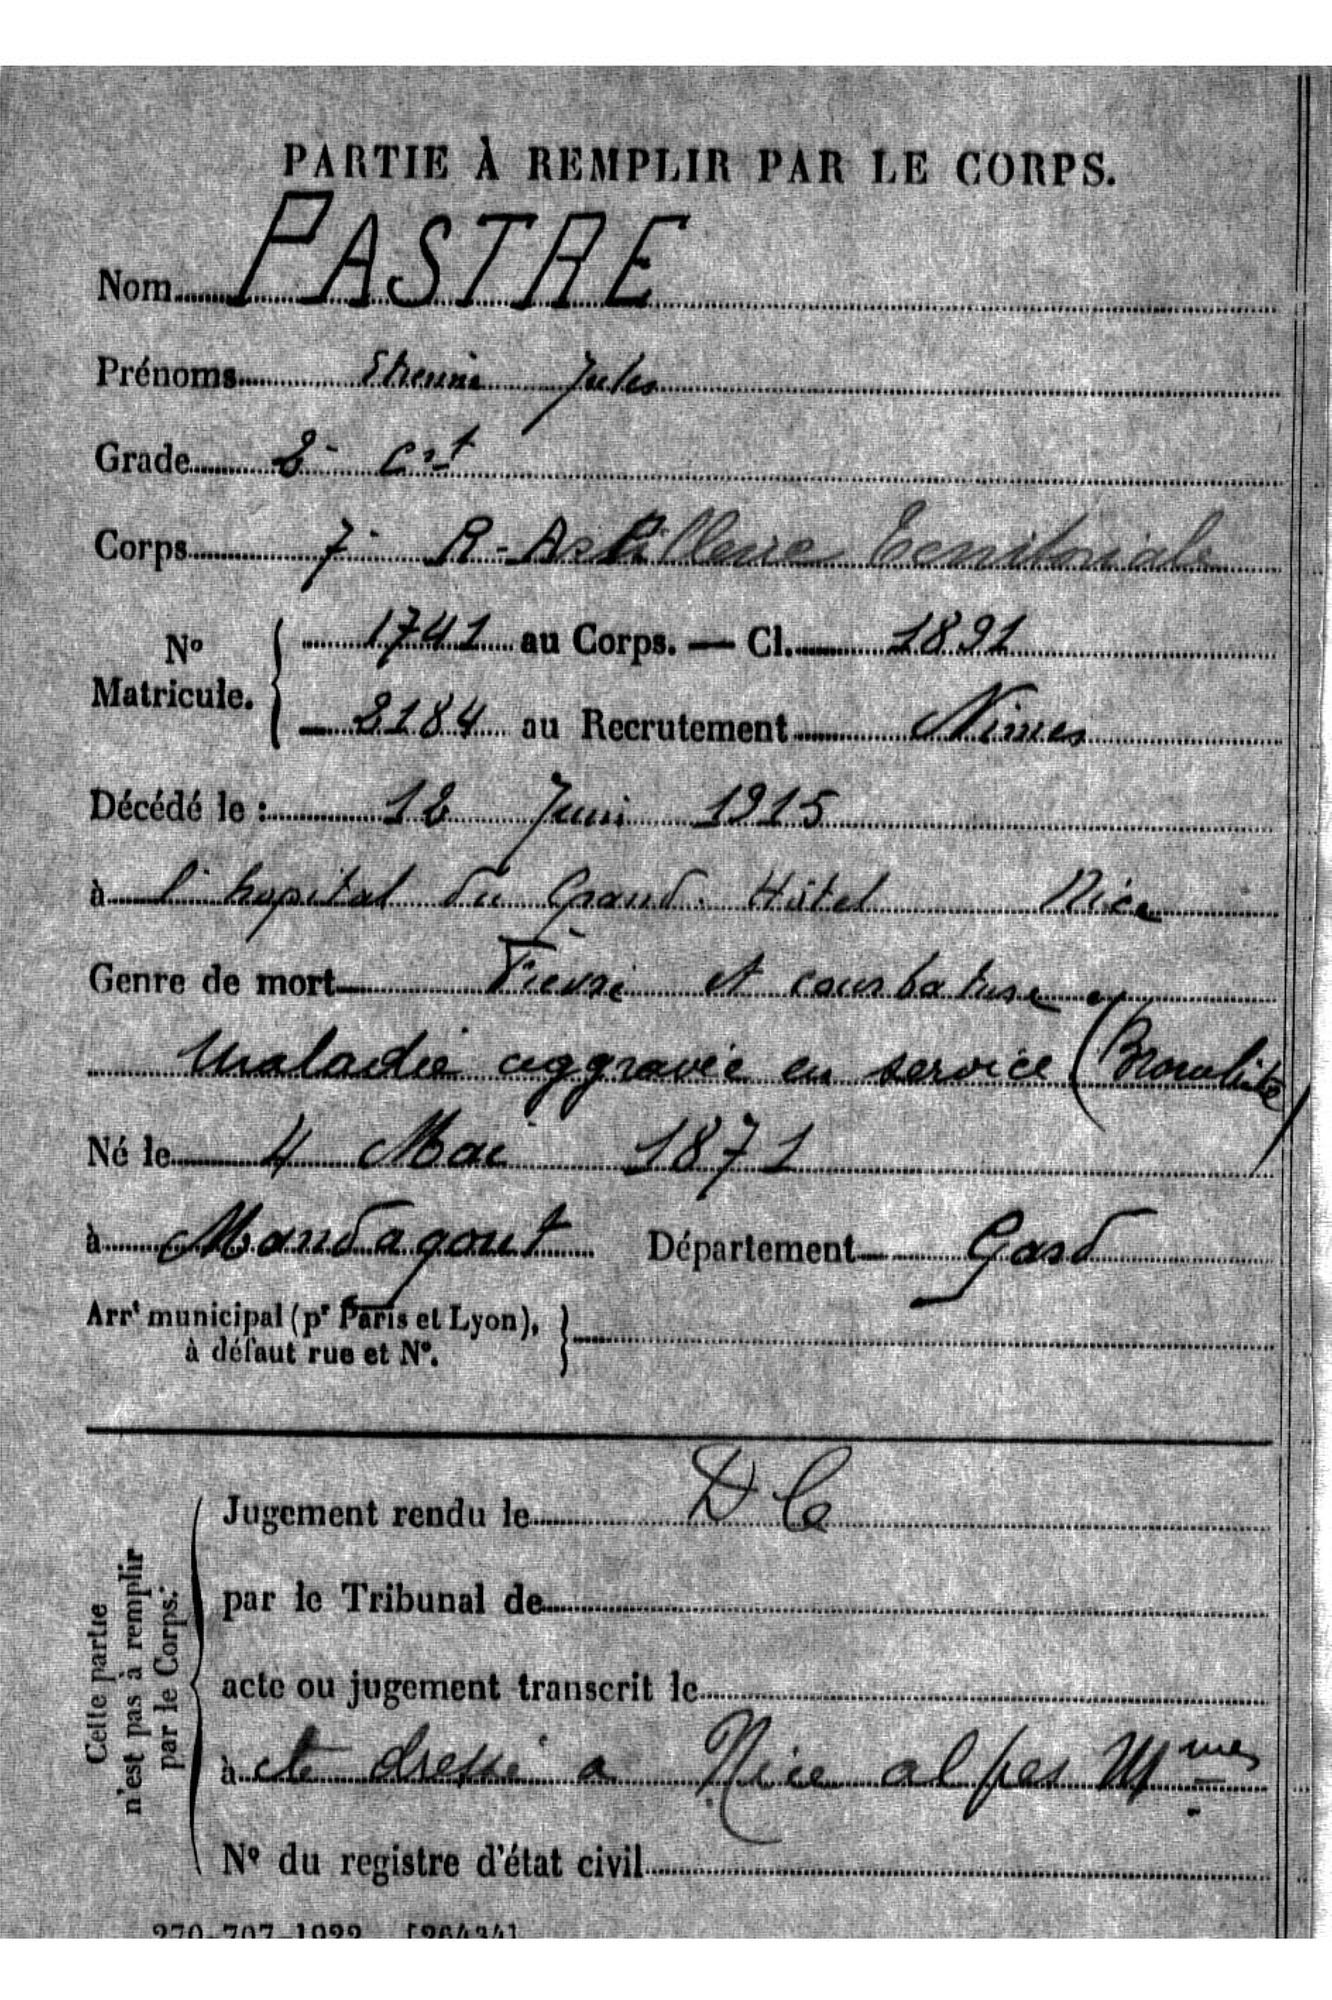 PARTIE À REMPLIR PAR LE CORPS.
Nom PASTRE
Prénoms Etienne Jules
Grade 2e Cnt
Corps 7e R-Artillerie Territoriale
No Matricule. 1741 au Corps. — Cl. 1891
2184 au Recrutement Nimes
Décédé le : 12 Juin 1915
à l'hopital du Grand-Hôtel Nice
Genre de mort Fièvre et courbature
Maladie aggravée en service (
Né le 4 Mai 1871
à Mandagout Département Gard
Arrt municipal (pr Paris et Lyon),
à défaut rue et No.
Cette partie n'est pas à remplir par le Corps.
Jugement rendu le D C
par le Tribunal de
acte ou jugement transcrit le
acte dressé a Nice alpes Mmes
No du registre d'état civil
270-707-1922. [26434]